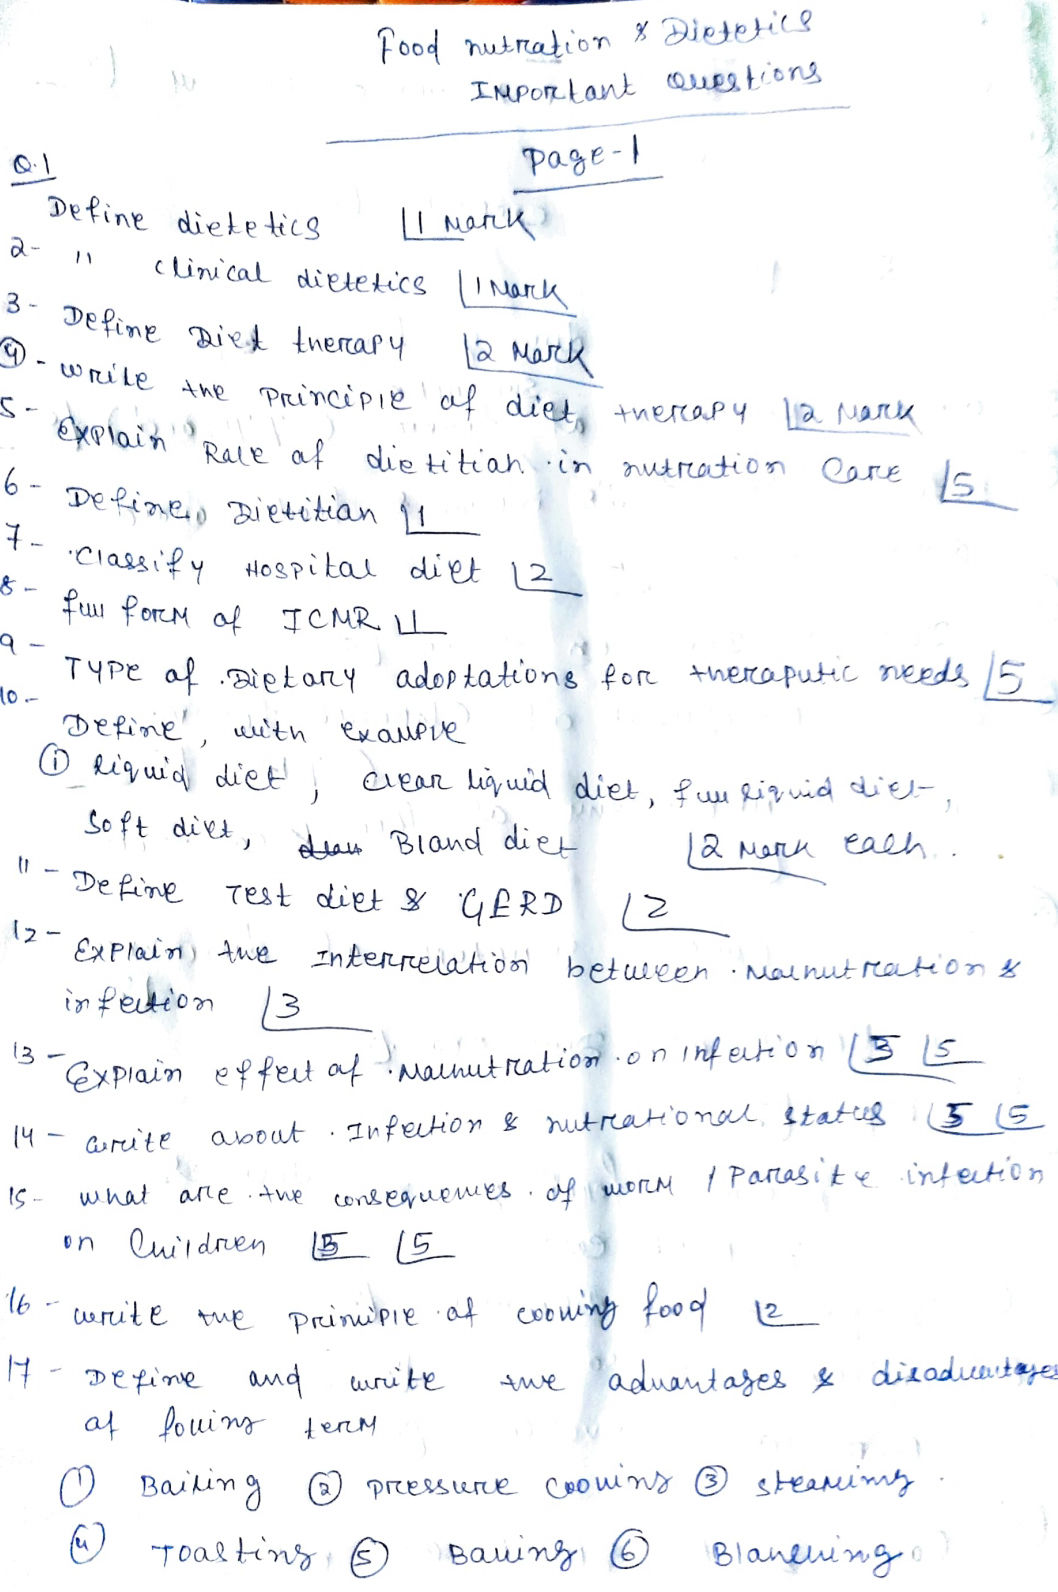 Food nutration & Dietetics
Important Questions
Page-1
Q.1
Define dietetics 1 Mark
2- " clinical dietetics 1 Mark
3- Define Diet therapy 2 Mark
4- write the principle of diet therapy 2 Mark
5- Explain Role of dietitian in nutration Care 5
6- Define Dietitian 1
7- Classify Hospital diet 2
8- full form of ICMR 1
9- Type of Dietary adoptations for theraputic needs 5
10- Define, with example
① liquid diet, clear liquid diet, full liquid diet,
Soft diet, Bland diet 2 Mark each.
11- Define Test diet & GERD 2
12- Explain the Interrelation between Malnutration &
infection 3
13- Explain effect of Malnutration on infection 3 5
14- write about Infection & nutrational status 5
15- what are the consequences of worm / Parasite infection
on Children 5
16- write the principle of cooking food 2
17- Define and write the advantages & disadvantages
of folling term
① Boiling ② pressure cooking ③ steaming.
④ Toasting ⑤ Baking ⑥ Blanching